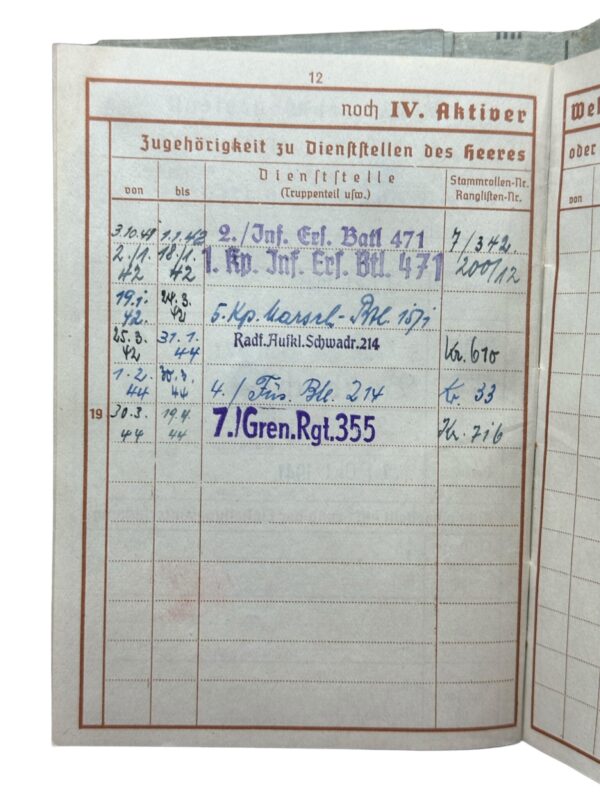 12
noch IV. Aktiver
Zugehörigkeit zu Dienststellen des Heeres
von bis Dienststelle (Truppenteil usw.) Stammrollen-Nr. Ranglisten-Nr.
3.10.41 2./Inf. Ers. Batl 471 7/342
2./1. 42 18./1. 42 1. Kp. Inf. Ers. Btl. 471 200/12
19.1. 42. 24.3. 42 5. Kp. Marsch-Btl.
25.3. 42 31.1. 44 Radf.Aufkl.Schwadr.214 Kr. 610
1.2. 44 30.3. 44 4./ Füs. Btl. 214 Kr. 33
19 30.3. 44 19.4. 44 7./Gren.Rgt.355 Kr. 716
Weh
oder
von